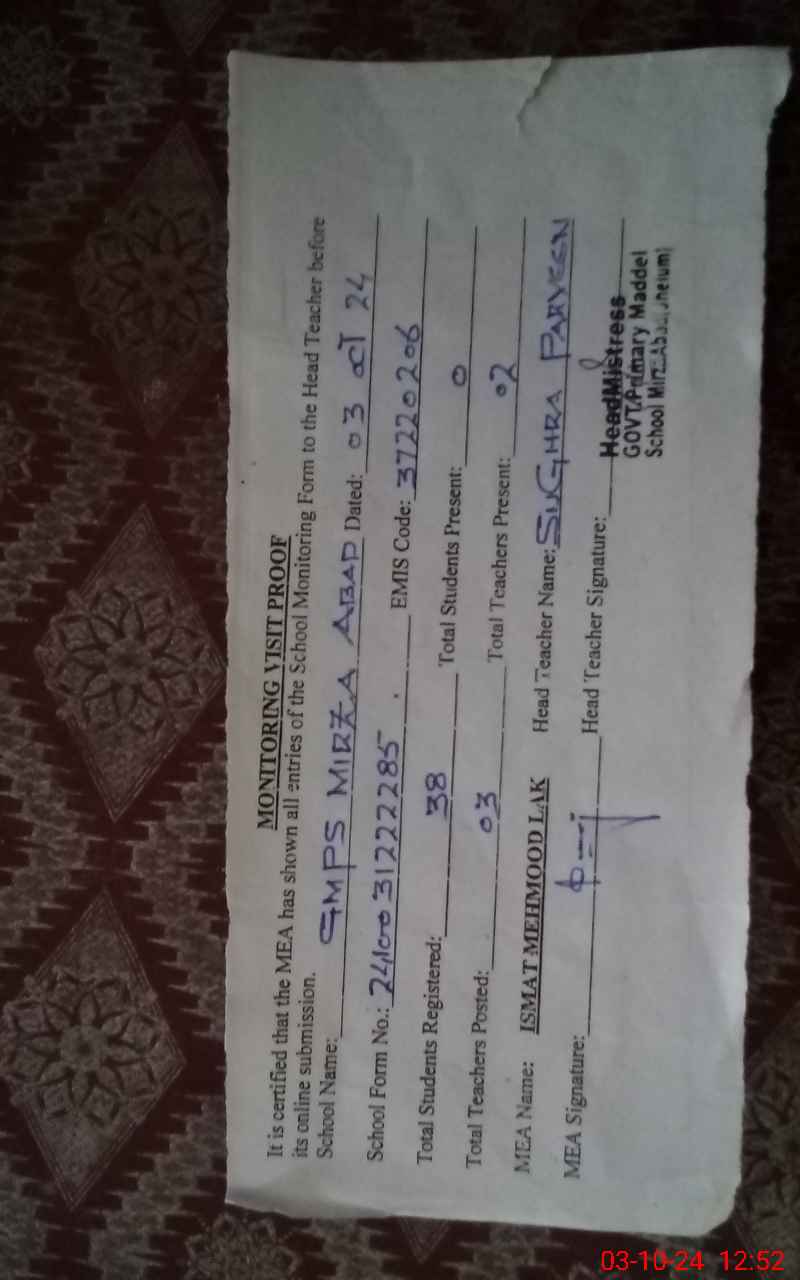 MONITORING VISIT PROOF
It is certified that the MEA has shown all entries of the School Monitoring Form to the Head Teacher before
its online submission.
School Name: GMPS MIRZA ABAD Dated: 03 oct 24
School Form No.: 2410031222285 EMIS Code: 37220206
Total Students Registered: 38 Total Students Present: 0
Total Teachers Posted: 03 Total Teachers Present: 02
MEA Name: ISMAT MEHMOOD LAK Head Teacher Name: SUGHRA PARVEEN
MEA Signature: Head Teacher Signature:
HeadMistress
GOVT.Primary Maddel
School
03-10-24 12:52